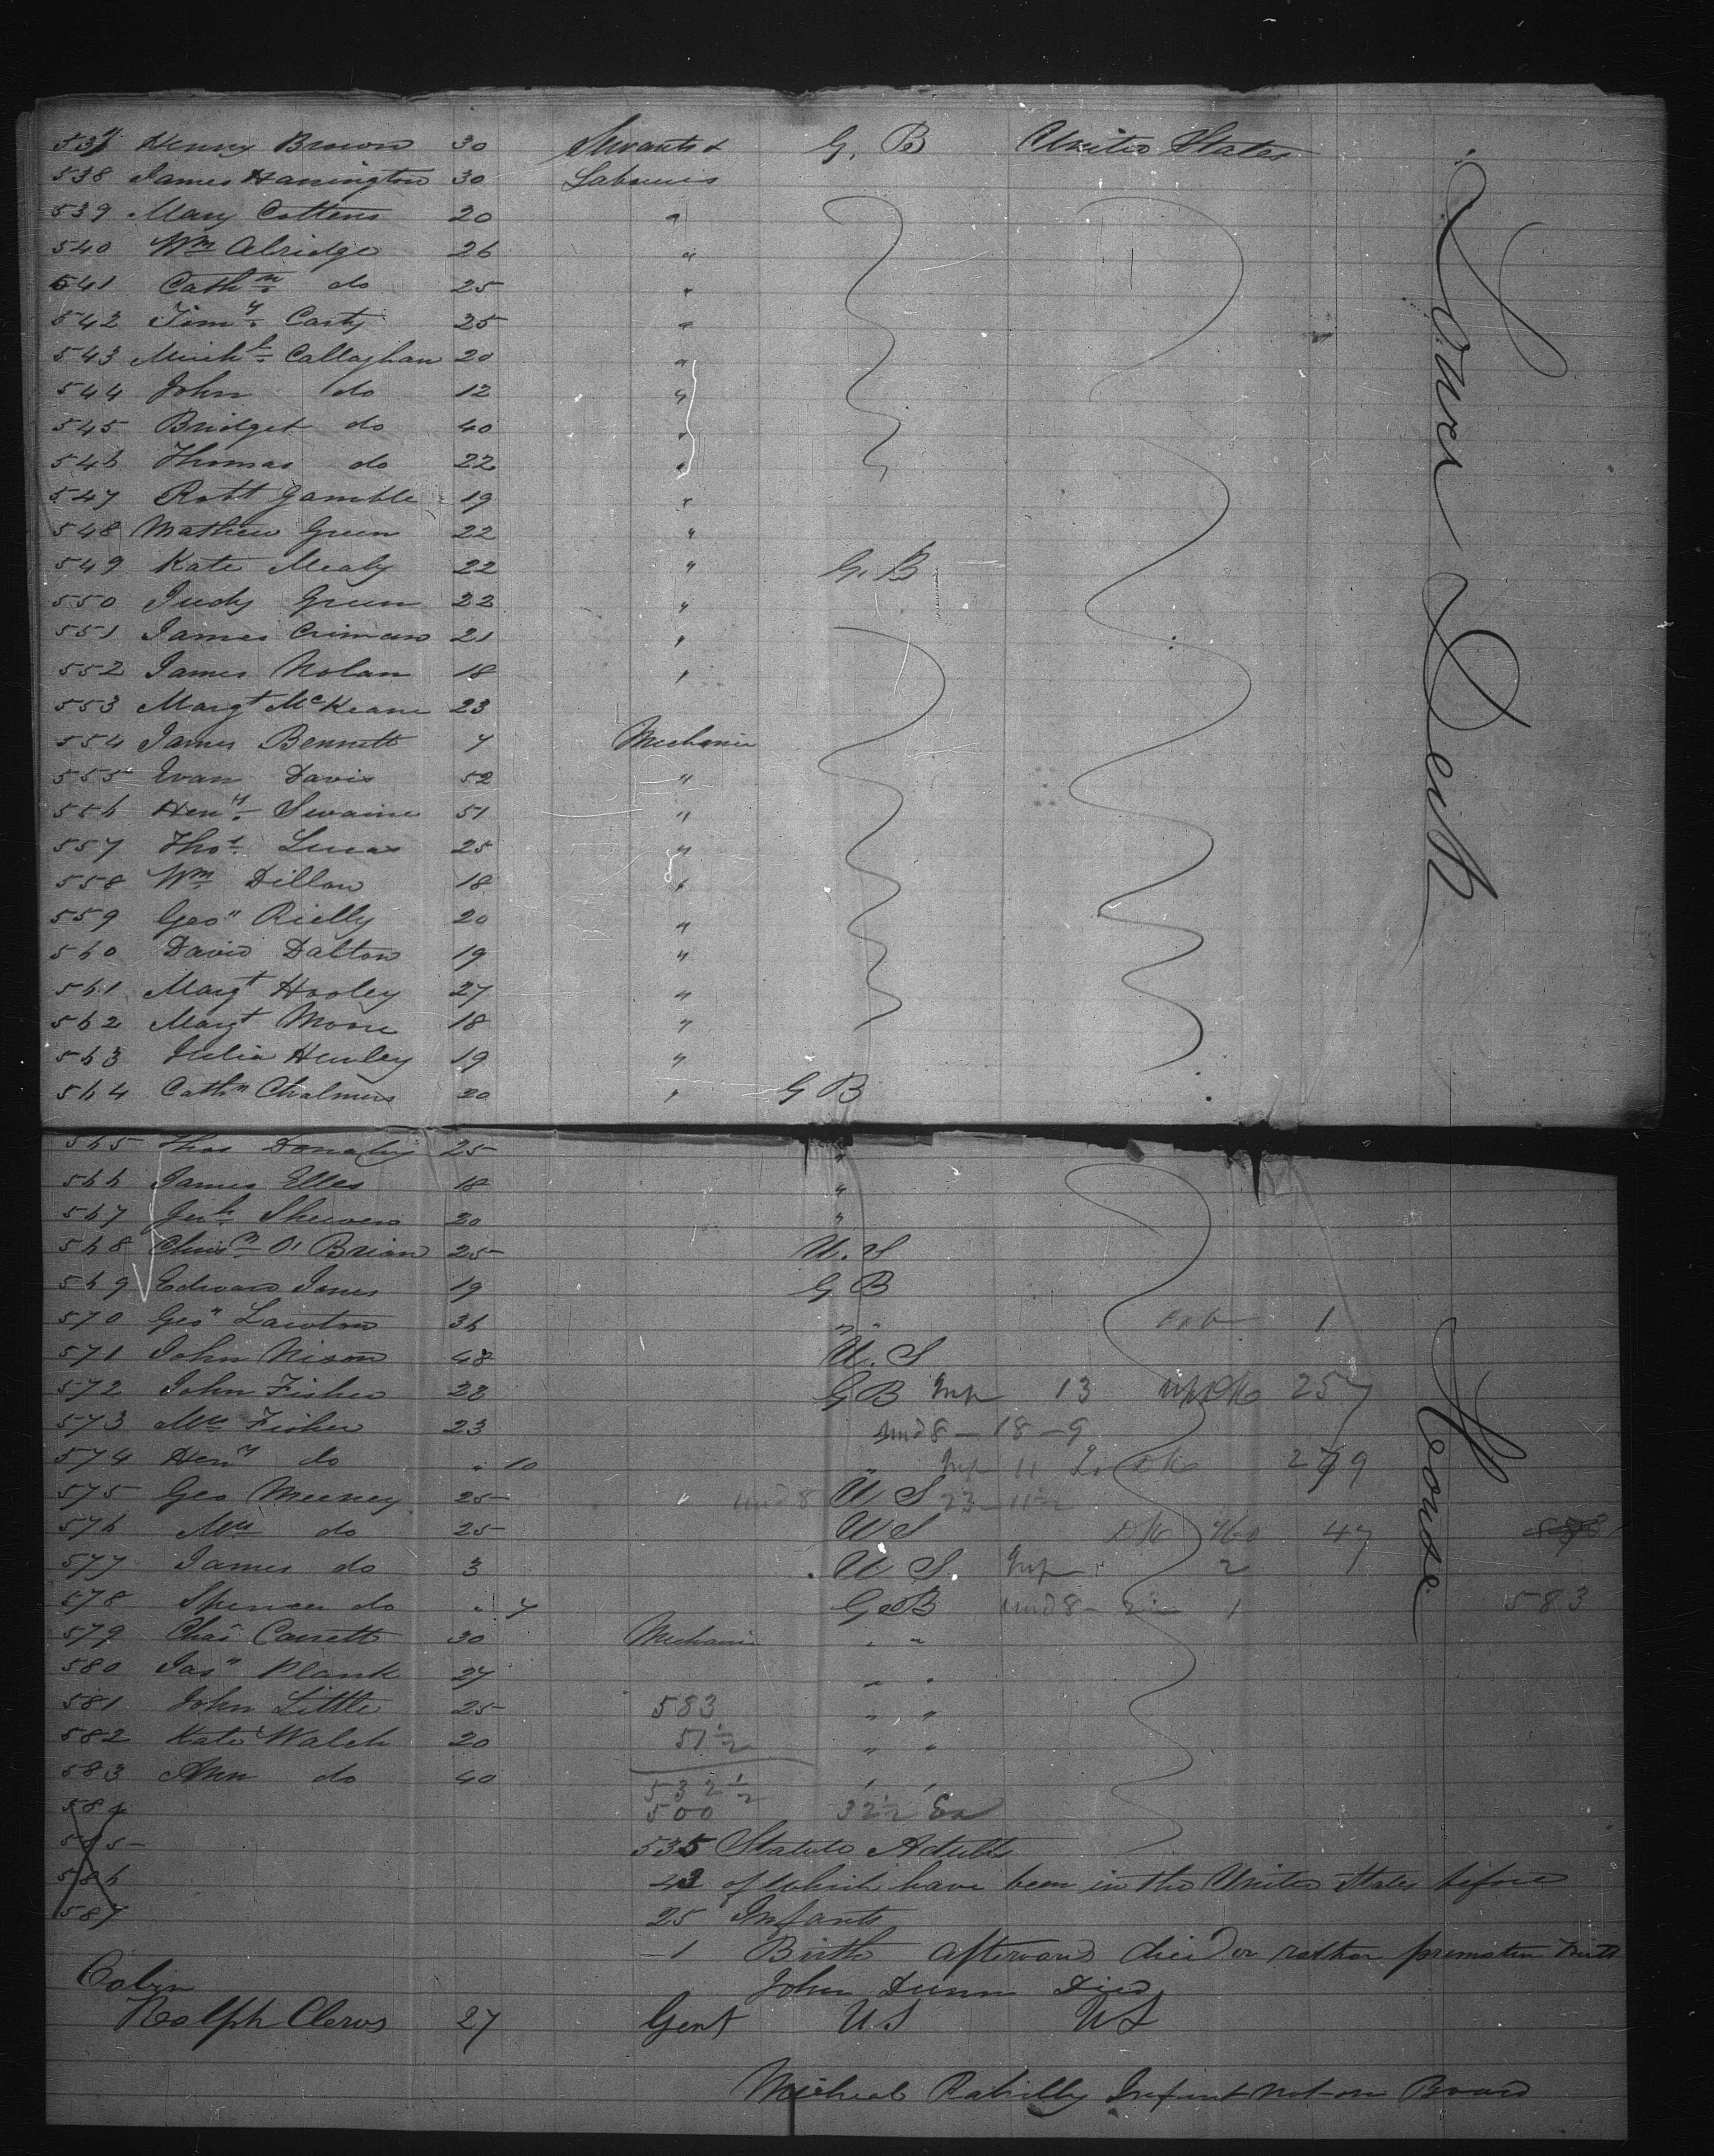 537 Henry Brown 30 Servants & G. B United States
538 James Hanington 30 Labourers
539 Mary Cottens 20 "
540 Wm Alridge 26 "
541 Cathn do 25 "
542 Timy Carty 25 "
543 Michl Callaghan 20 "
544 John do 12 "
545 Bridget do 40 "
546 Thomas do 22 "
547 Robt Gamble 19 "
548 Mathew Green 22 "
549 Kate Mealy 22 " G. B
550 Judy Green 22 "
551 James 21 "
552 James Nolan 18 "
553 Margt McKeane 23
554 James Bennett 7 Mechanic
555 Evan Davis 52 "
556 Heny Swaine 51 "
557 Thos Lucas 25 "
558 Wm Dillon 18 "
559 Geo" Rielly 20 "
560 David Dalton 19 "
561 Margt Hooley 27 "
562 Margt Moore 18 "
563 Julia Henley 19 "
564 Cathn Chalmers 20 " G B
Lower Deck
565 Thos 25 "
566 James Elles 18 "
567 20 "
568 O'Brian 25 U. S
569 Edward Jones 19 G B
570 Geo" Lawton 36 " " 1
571 John Nixon 48 U. S
572 John Fisher 23 G B 13 257
573 Mrs Fisher 23 und 8 - 18 - 9
574 Heny do " 10 " 11
575 Geo Meeney 25 und 8 U S 23 - 11 1/2
576 Mrs do 25 U S 47
577 James do 3 U S. 2
578 Spencer do " 7 G B und 8 - 1 583
579 Chas 30 Mechanic " "
580 Jas" Plank 27 " "
581 John Little 25 583 " "
582 Kate Walsh 20 51 1/2 " "
583 Ann do 40 " "
532 1/2
584 500 32 1/2
585 535 Statute Adults
586 of which have been in the United States before
587 25 Infants
House
-1 Birth afterward died or rather premature birth
Colin John Dunn Died
Rolph Clews 27 Gent U.S U S
Micheal Infant not on Board